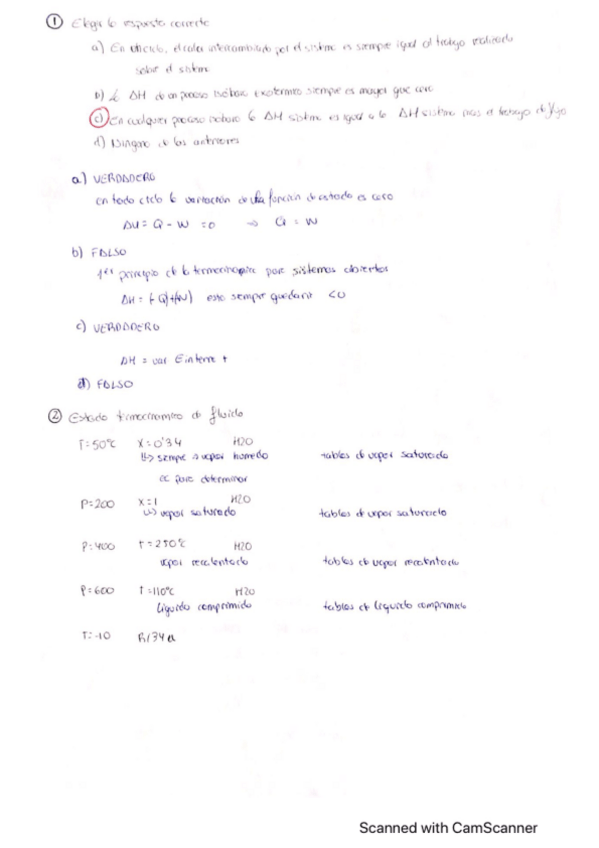 ① Elige la respuesta correcta
a) En un ciclo, el calor intercambiado por el sistema es siempre igual al trabajo realizado
sobre el sistema
b) La ΔH de un proceso isóbaro exotérmico siempre es mayor que cero
c) En cualquier proceso isóbaro la ΔH sistema es igual a la ΔH sistema más el trabajo de flujo
d) Ninguna de las anteriores
a.) VERDADERO
en todo ciclo la variación de una función de estado es cero
ΔU = Q - W = 0 → Q = W
b) FALSO
1er principio de la termodinámica para sistemas abiertos
esto siempre quedaría <0
c) VERDADERO
ΔH = var Einterna +
d) FALSO
② Estado termodinámico de fluido
T=50ºC X=0'34 H2O
↳> siempre vapor húmedo tablas de vapor saturado
para determinar
P=200 X=1 H2O
↳> vapor saturado tablas de vapor saturado
P=400 t=250ºC H2O
vapor recalentado tablas de vapor recalentado
P=600 T=110ºC H2O
líquido comprimido tablas de líquido comprimido
T=-10 R134a
Scanned with CamScanner